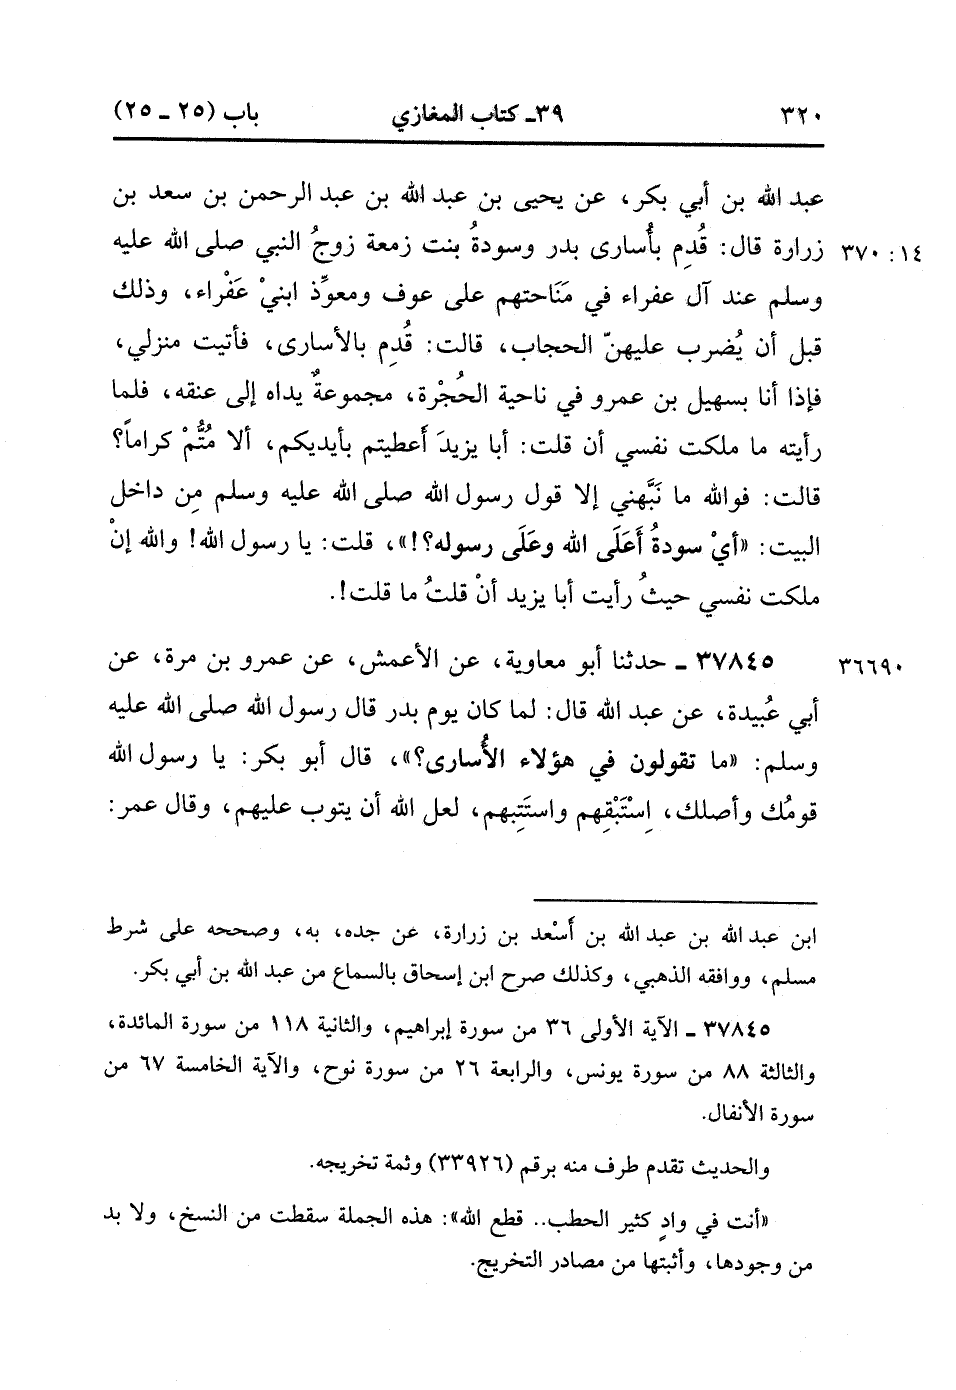 ٣٢٠ ٣٩ـ كتاب المغازي باب (٢٥ ـ ٢٥)
عبد الله بن أبي بكر، عن يحيى بن عبد الله بن عبد الرحمن بن سعد بن
١٤: ٣٧٠ زرارة قال: قُدِم بأُسارى بدر وسودةُ بنت زمعة زوجُ النبي صلى الله عليه
وسلم عند آل عفراء في مَنَاحتهم على عوف ومعوِّذ ابنيْ عَفْراء، وذلك
قبل أن يُضرب عليهنّ الحجاب، قالت: قُدِم بالأسارى، فأتيت منزلي،
فإذا أنا بسهيل بن عمرو في ناحية الحُجْرة، مجموعةٌ يداه إلى عنقه، فلما
رأيته ما ملكت نفسي أن قلت: أبا يزيدَ أَعطيتم بأيديكم، ألا مُتُّمْ كراماً؟
قالت: فوالله ما نَبَّهني إلا قول رسول الله صلى الله عليه وسلم مِن داخل
البيت: «أيْ سودةُ أَعَلَى الله وعَلَى رسوله؟!»، قلت: يا رسول الله! والله إنْ
ملكت نفسي حيثُ رأيت أبا يزيد أنْ قلتُ ما قلت!.
٣٦٦٩٠ ٣٧٨٤٥ ـ حدثنا أبو معاوية، عن الأعمش، عن عمرو بن مرة، عن
أبي عُبيدة، عن عبد الله قال: لما كان يوم بدر قال رسول الله صلى الله عليه
وسلم: «ما تقولون في هؤلاء الأُسارى؟»، قال أبو بكر: يا رسول الله
قومُك وأصلك، اِسْتَبْقِهم واستَتِبهم، لعل الله أن يتوب عليهم، وقال عمر:
ابن عبد الله بن عبد الله بن أَسْعد بن زرارة، عن جده، به، وصححه على شرط
مسلم، ووافقه الذهبي، وكذلك صرح ابن إسحاق بالسماع من عبد الله بن أبي بكر.
٣٧٨٤٥ ـ الآية الأولى ٣٦ من سورة إبراهيم، والثانية ١١٨ من سورة المائدة،
والثالثة ٨٨ من سورة يونس، والرابعة ٢٦ من سورة نوح، والآية الخامسة ٦٧ من
سورة الأنفال.
والحديث تقدم طرف منه برقم (٣٣٩٢٦) وثمة تخريجه.
«أنت في وادٍ كثير الحطب.. قطع الله»: هذه الجملة سقطت من النسخ، ولا بد
من وجودها، وأثبتها من مصادر التخريج.